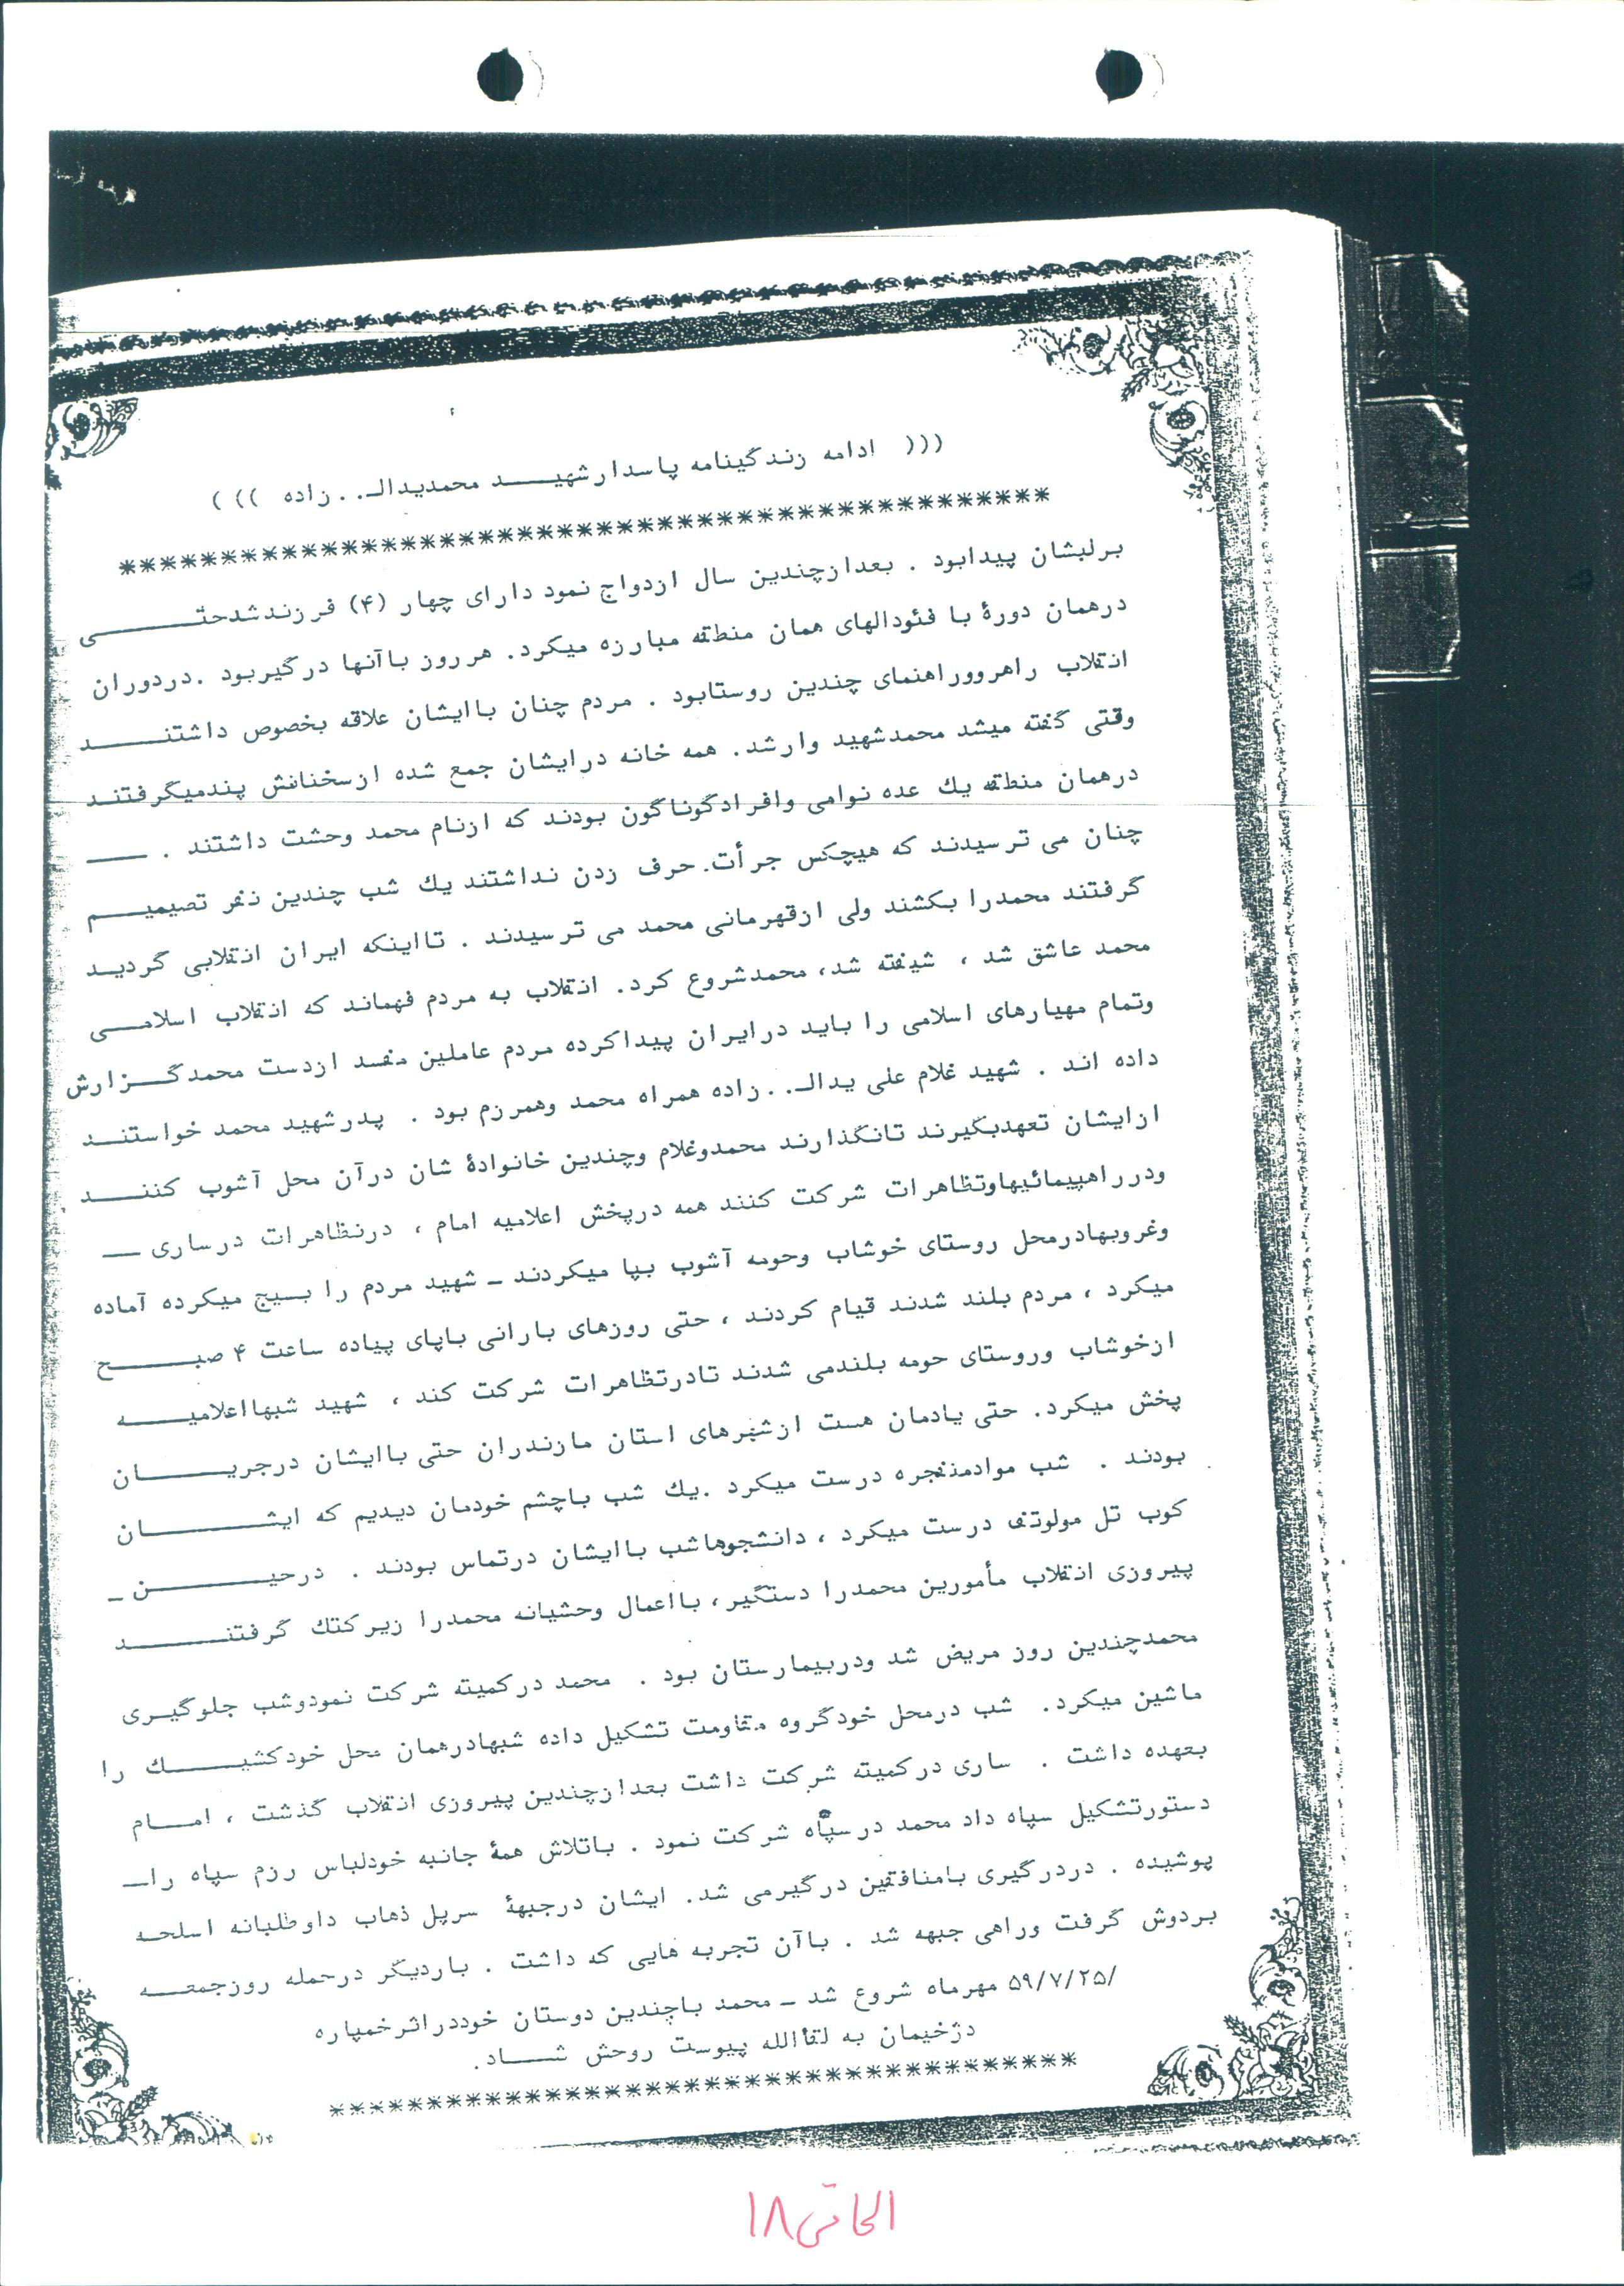 ((( ادامه زندگینامه پاسدار شهید محمدیدالـ.. زاده )))
************************************************
برلبشان پیدابود . بعدازچندین سال ازدواج نمود دارای چهار (۴) فرزندشدحتی
درهمان دورهٔ با فئودالهای همان منطقه مبارزه میکرد. هرروز باآنها درگیربود .دردوران
انقلاب راهروراهنمای چندین روستابود . مردم چنان باایشان علاقه بخصوص داشتند
وقتی گفته میشد محمدشهید وارشد. همه خانه درایشان جمع شده ازسخنانش پندمیگرفتند
درهمان منطقه یك عده نوامی وافرادگوناگون بودند که ازنام محمد وحشت داشتند . ـ
چنان می ترسیدند که هیچکس جرأت.حرف زدن نداشتند یك شب چندین نفر تصیمیم
گرفتند محمدرا بکشند ولی ازقهرمانی محمد می ترسیدند . تااینکه ایران انقلابی گردید
محمد عاشق شد ، شیفته شد، محمدشروع کرد. انقلاب به مردم فهماند که انقلاب اسلامی
وتمام مهیارهای اسلامی را باید درایران پیداکرده مردم عاملین مفسد ازدست محمدگزارش
داده اند . شهید غلام علی یدالـ.. زاده همراه محمد وهمرزم بود . پدرشهید محمد خواستند
ازایشان تعهدبگیرند تانگذارند محمدوغلام وچندین خانوادهٔ شان درآن محل آشوب کنند
ودرراهپیمائیهاوتظاهرات شرکت کنند همه درپخش اعلامیه امام ، درنظاهرات درساری ـ
وغروبهادرمحل روستای خوشاب وحومه آشوب بپا میکردند ـ شهید مردم را بسیج میکرده آماده
میکرد ، مردم بلند شدند قیام کردند ، حتی روزهای بارانی باپای پیاده ساعت ۴ صبح
ازخوشاب وروستای حومه بلندمی شدند تادرتظاهرات شرکت کند ، شهید شبهااعلامیه
پخش میکرد. حتی یادمان هست ازشهرهای استان مازندران حتی باایشان درجریان
بودند . شب موادمنفجره درست میکرد .یك شب باچشم خودمان دیدیم که ایشان
کوب تل مولوتفی درست میکرد ، دانشجوهاشب باایشان درتماس بودند . درحین ـ
پیروزی انقلاب مأمورین محمدرا دستگیر، بااعمال وحشیانه محمدرا زیرکتك گرفتند
محمدچندین روز مریض شد ودربیمارستان بود . محمد درکمیته شرکت نمودوشب جلوگیری
ماشین میکرد. شب درمحل خودگروه مقاومت تشکیل داده شبهادرهمان محل خودکشیك را
بعهده داشت . ساری درکمیته شرکت داشت بعدازچندین پیروزی انقلاب گذشت ، امام
دستورتشکیل سپاه داد محمد درسپاه شرکت نمود . باتلاش همهٔ جانبه خودلباس رزم سپاه راـ
پوشیده . دردرگیری بامنافقین درگیرمی شد. ایشان درجبههٔ سرپل ذهاب داوطلبانه اسلحه
بردوش گرفت وراهی جبهه شد . باآن تجربه هایی که داشت . باردیگر درحمله روزجمعه
/۵۹/۷/۲۵ مهرماه شروع شد ـ محمد باچندین دوستان خوددراثرخمپاره
دژخیمان به لقاالله پیوست روحش شاد.
**************************************
الحاقی ۱۸